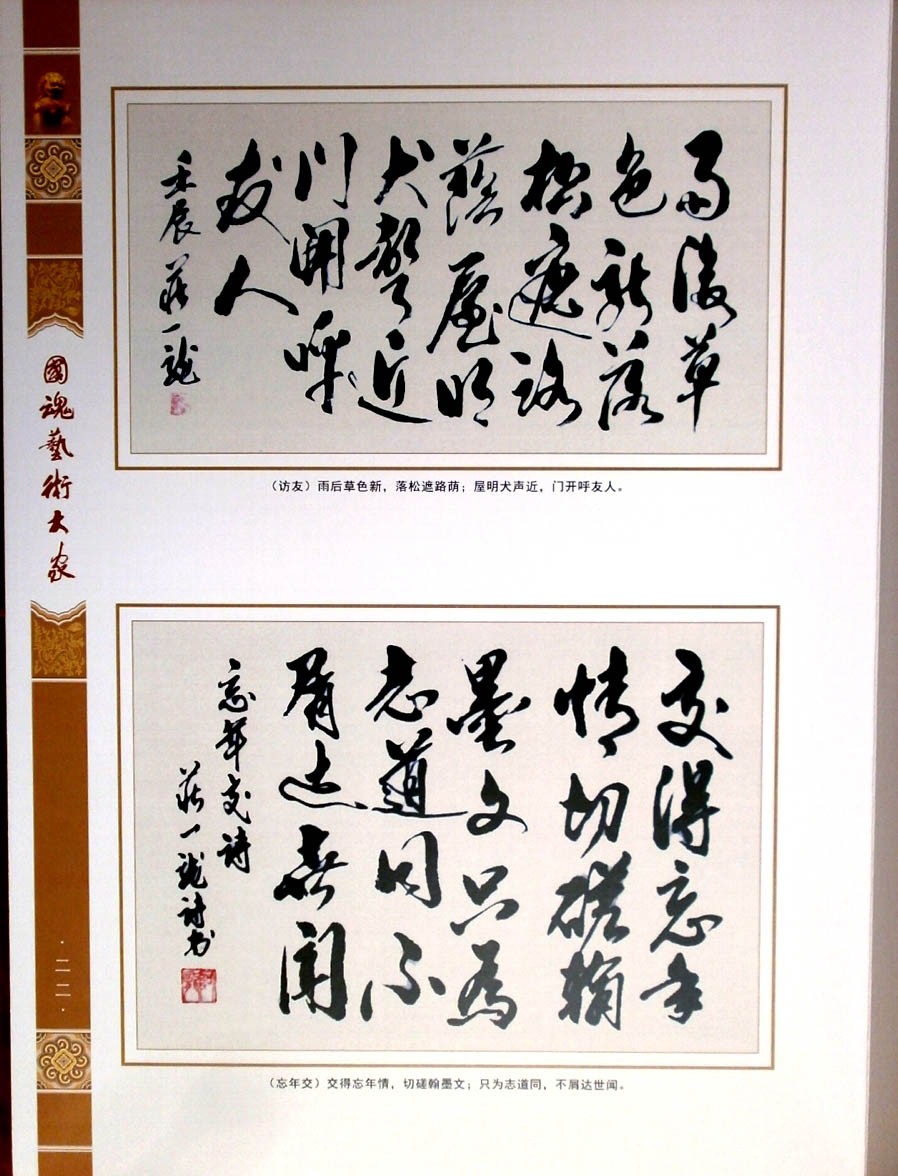 國魂藝術大家
·二二·
雨後草
色新落
松遮路
蔭屋明
犬聲近
门開呼
友人
壬辰 莊一龍
（访友）雨后草色新，落松遮路荫；屋明犬声近，门开呼友人。
交得忘年
情切磋翰
墨文只為
志道同不
屑达世闻
忘年交詩
莊一龍詩书
（忘年交）交得忘年情，切磋翰墨文；只为志道同，不屑达世闻。